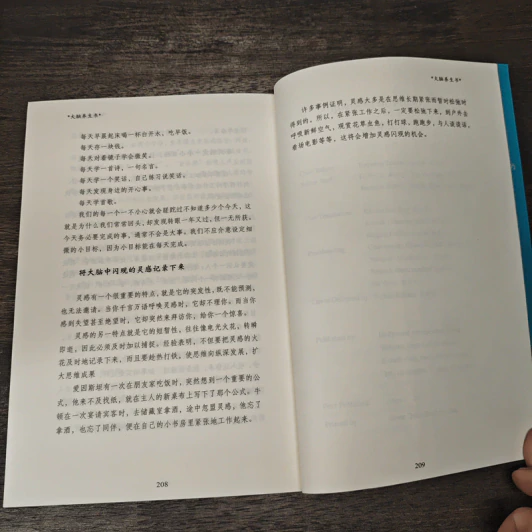 *大脑养生书*
每天早晨起床喝一杯白开水，吃早饭。
每天存一块钱。
每天对着镜子学会微笑。
每天学一首诗，一句名言。
每天学一个笑话，自己练习说笑话。
每天发现身边的开心事。
每天学着歌。
我们的每一个一不小心就会蹉跎过不知道多少个今天，这
就是为什么我们常常回头，却发现转眼一年又过，但一无所获。
今天务必要完成的事，通常不会是大事。我们不应介意设定细
微的小目标，因为小目标就在每天完成。
将大脑中闪现的灵感记录下来
灵感有一个很重要的特点，就是它的突发性，既不能预测，
也无法邀请。当你千言万语呼唤灵感时，它却不理你。而当你
感到失望甚至绝望时，它却突然来拜访你，给你一个惊喜。
灵感的另一特点就是它的短暂性，往往像电光火花，转瞬
即逝。因此必须及时加以捕捉。经验表明，不但要把灵感的火
花及时地记录下来，而且要趁热打铁，使思维向纵深发展，扩
大思维成果
爱因斯坦有一次在朋友家吃饭时，突然想到一个重要的公
式，他来不及找纸，就在主人的新桌布上写下了那个公式。牛
顿在一次宴请宾客时，去储藏室拿酒，途中忽盟灵感，他忘了
拿酒，也忘了同伴，便在自己的小书房里紧张地工作起来。
208
*大脑养生书*
许多事例证明，灵感大多是在思维长期紧张而暂时松弛时
得到的。所以，在紧张工作之后，一定要松弛下来，到户外去
呼吸新鲜空气，观赏花草虫鱼，打打球，跑跑步，与人谈谈话，
看场电影等等，这将会增加灵感闪现的机会。
209